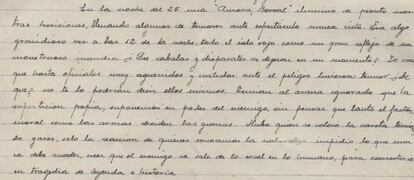 En la noche del 25 una "Aurora Boreal" iluminó de pronto nues
tras posiciones, llenando algunos de temores ante espectáculo nunca visto. Era algo
grandioso ver a las 12 de la noche todo el cielo rojo como un gran reflejo de un
monstruoso incendio. ¿Que cabalas y disparates se dijeron en un momento? Lo cierto
que hasta oficiales muy aguerridos y curtidos ante el peligro tuvieron temor ¿de
que? no te lo podrían decir ellos mismos. Temian al arma ignorada que la
superticion propia, suponemos en poder del enemigo, sin pensar que tanto el factor
moral como las armas deciden las guerras. Hubo quien se coloco la careta temien
do gases, solo la reaccion de quienes conocemos la naturaleza impidio lo que nun
ca debe suceder, creer que el enemigo se sale de lo cruel en lo humano, para convertirse
en tragedia de leyenda e historia.